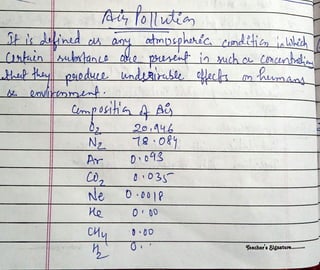 Air Pollution
It is defined as any atmospheric condition in which
certain substance are present in such a concentration
that they produce undesirable effects on humans
& environment.
Composition of Air
O2 20.946
N2 78.084
Ar 0.093
CO2 0.035
Ne 0.0018
He 0.00
CH4 0.00
H2 0.
Teacher's Signature